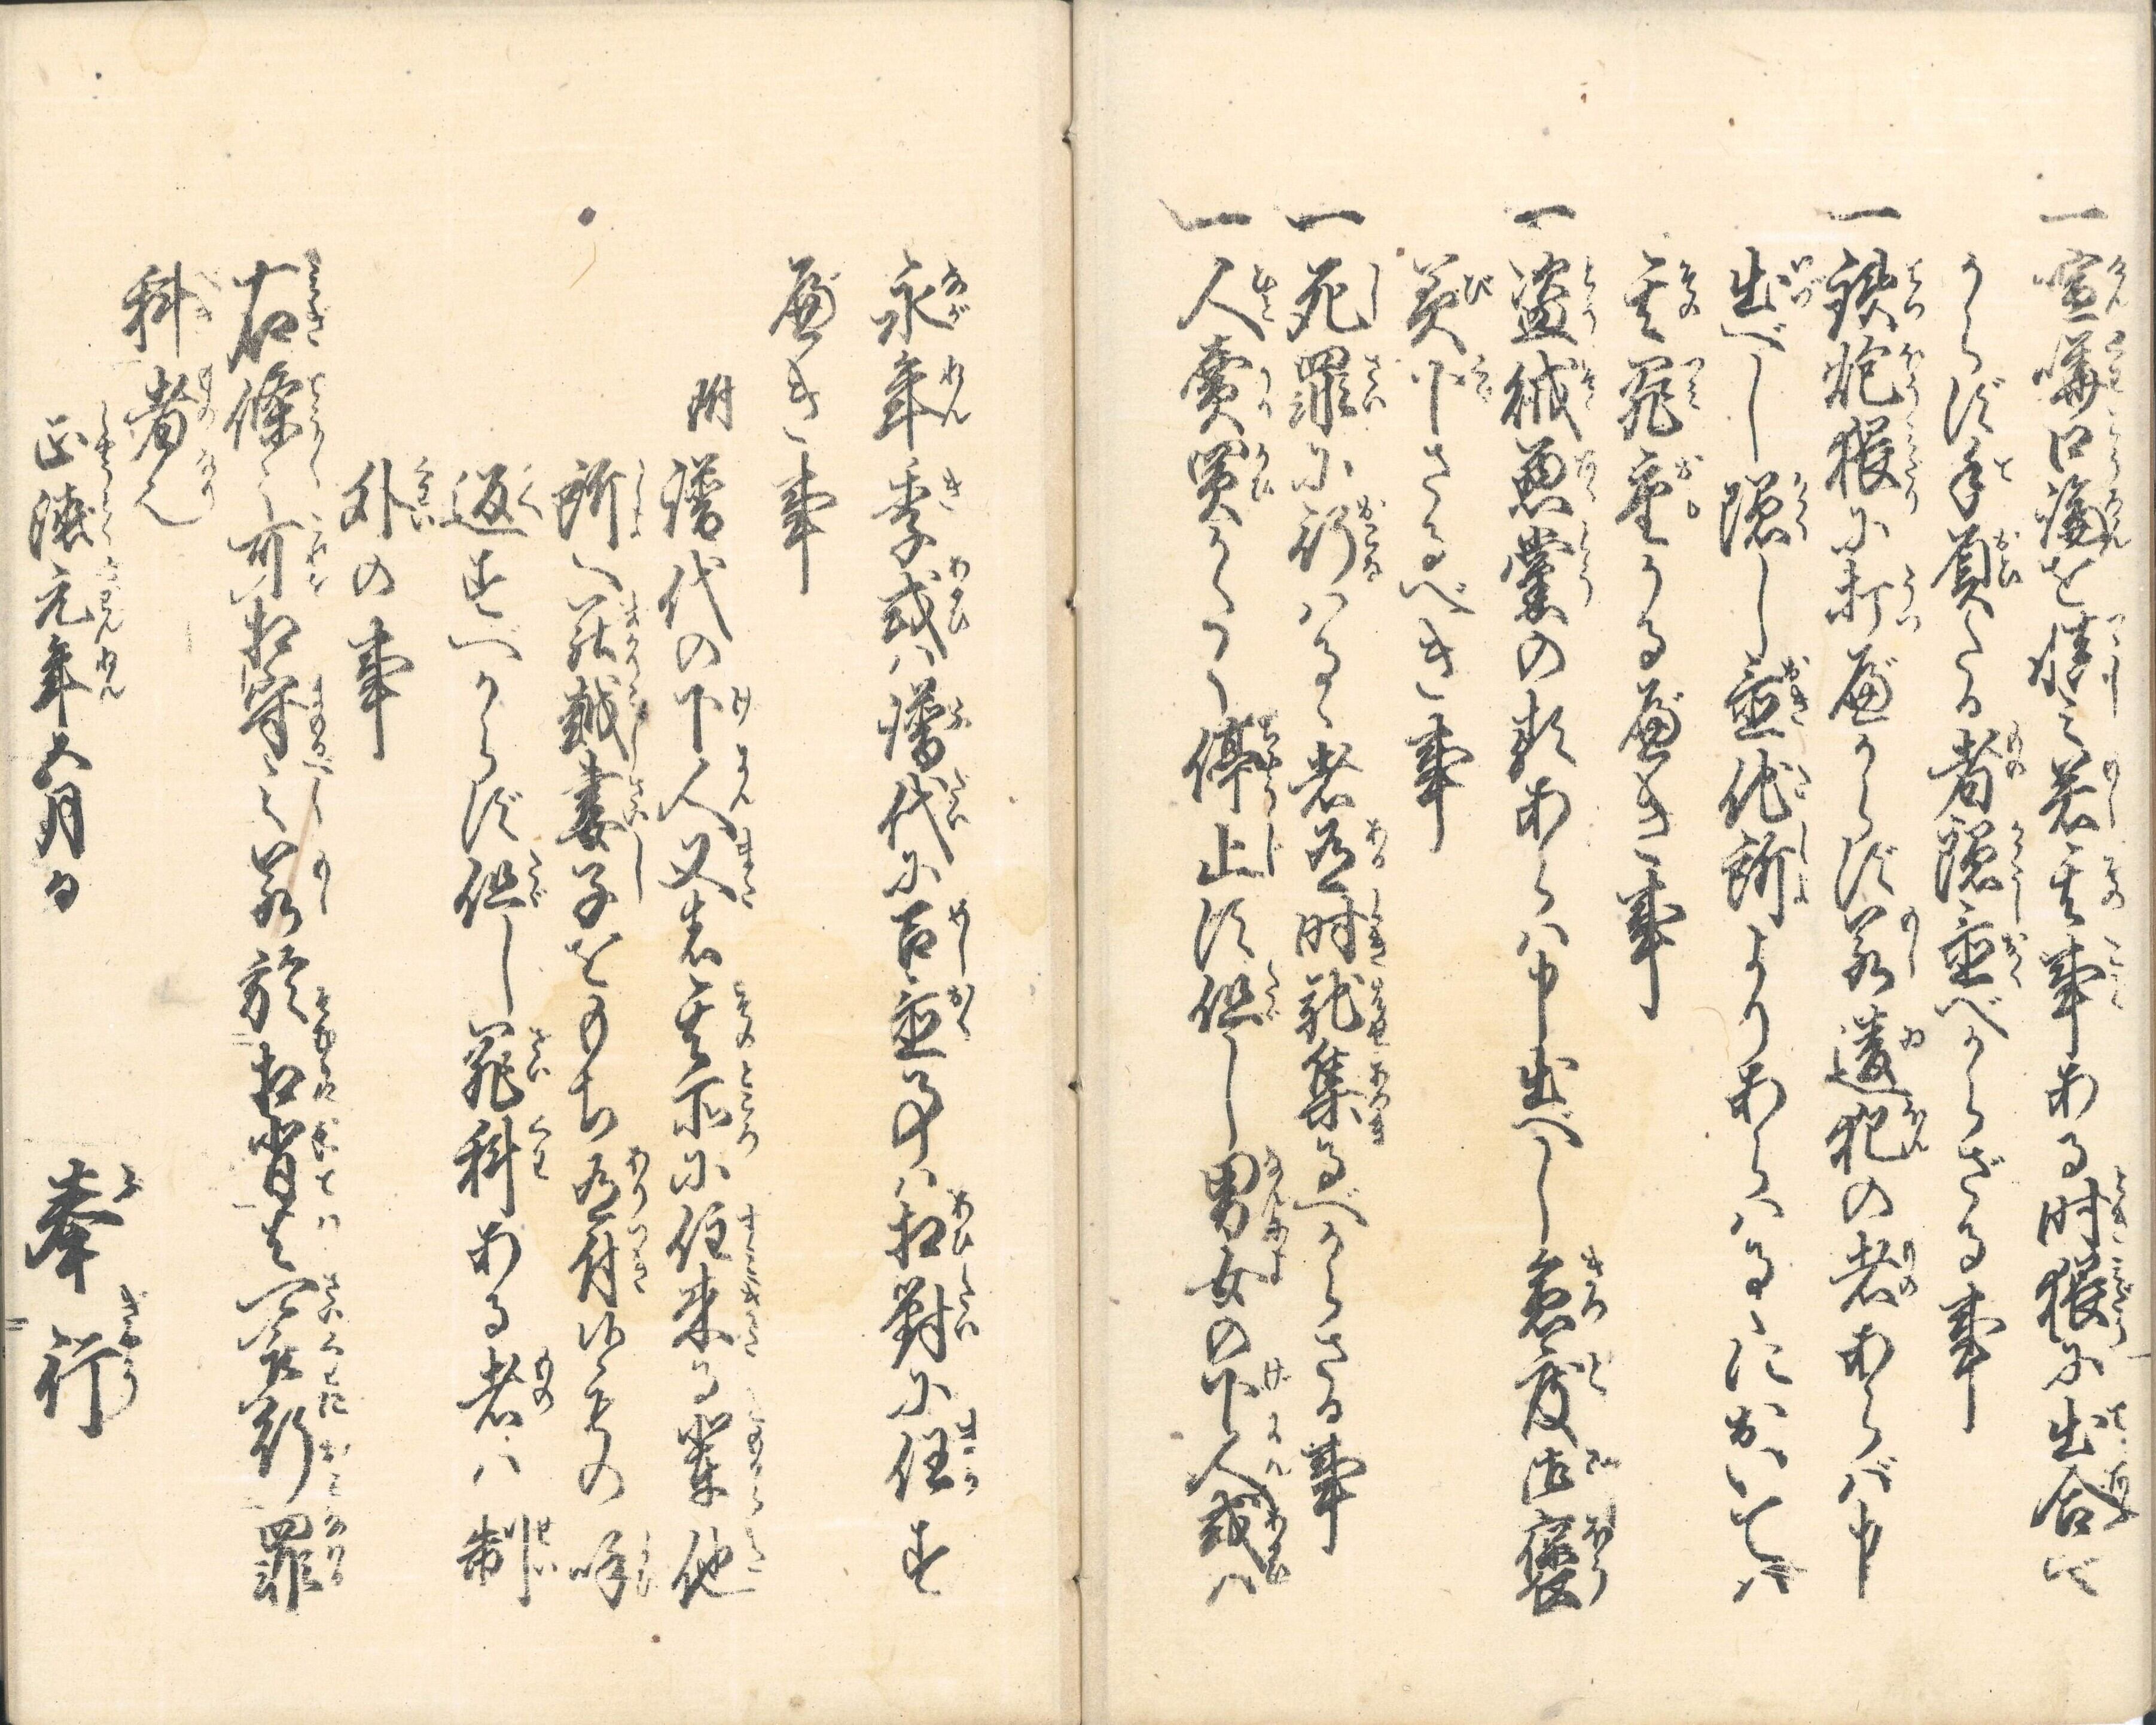 一喧嘩口論を慎之若其事ある時猥に出合べ
からず手負たる者隠置べからざる事
一鉄炮猥に打べからず若違犯の者あらバ申
出べし隠し置他所よりあらハるゝにおいてハ
其罪重かるべき事
一盗賊悪黨の類あらハ申出べし急度御褒
美下さるべき事
一死罪に行ハるゝ者有時馳集るべからさる事
一人賣買かたく停止す但し男女の下人或ハ
永年季或ハ譜代に召置事ハ相對に任す
べき事
附 譜代の下人又者其所に住来る輩他
所へ罷越妻子をのち有付候ものの呼
返すべからず但し罪科ある者ハ制
外の事
右條々可相守之若於相背者可被行罪
科者也
正徳元年五月日
奉行